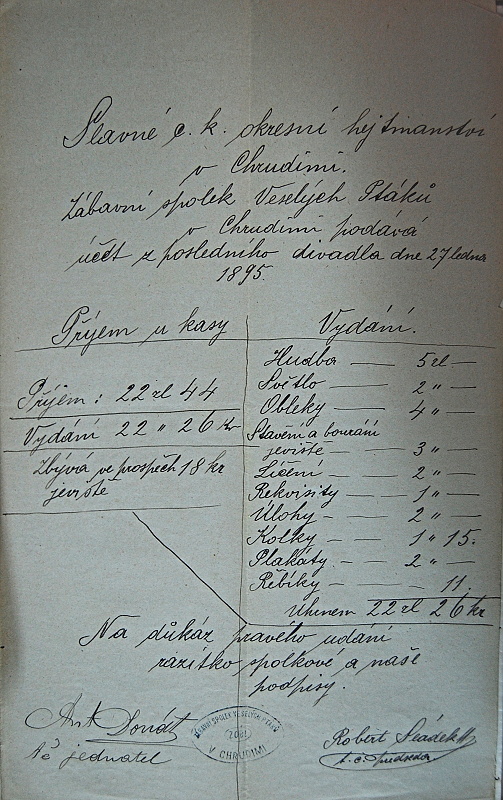 Slavné c. k. okresní hejtmanství
v Chrudimi.
Zábavní spolek Veselých Ptáků
v Chrudimi podává
účet z posledního divadla dne 27 ledna
1895.
Příjem u kasy
Příjem: 22 zl 44
Vydání 22 " 26 kr
Zbývá ve prospěch 18 kr
jeviště
Vydání.
Hudba — 5 zl —
Světlo — 2 " —
Obleky — 4 " —
Stavění a bourání
jeviště — 3 " —
Líčení — 2 " —
Rekvisity — 1 " —
Úlohy — 2 " —
Kolky — 1 " 15.
Plakáty — 2 " —
Řebíky — — 11.
Uhrnem 22 zl 26 kr
Na důkaz pravého udání
razítko spolkové a naše
podpisy.
Ant. Donát
jednatel
V CHRUDIMI
Robert Sládek
t. č. předseda